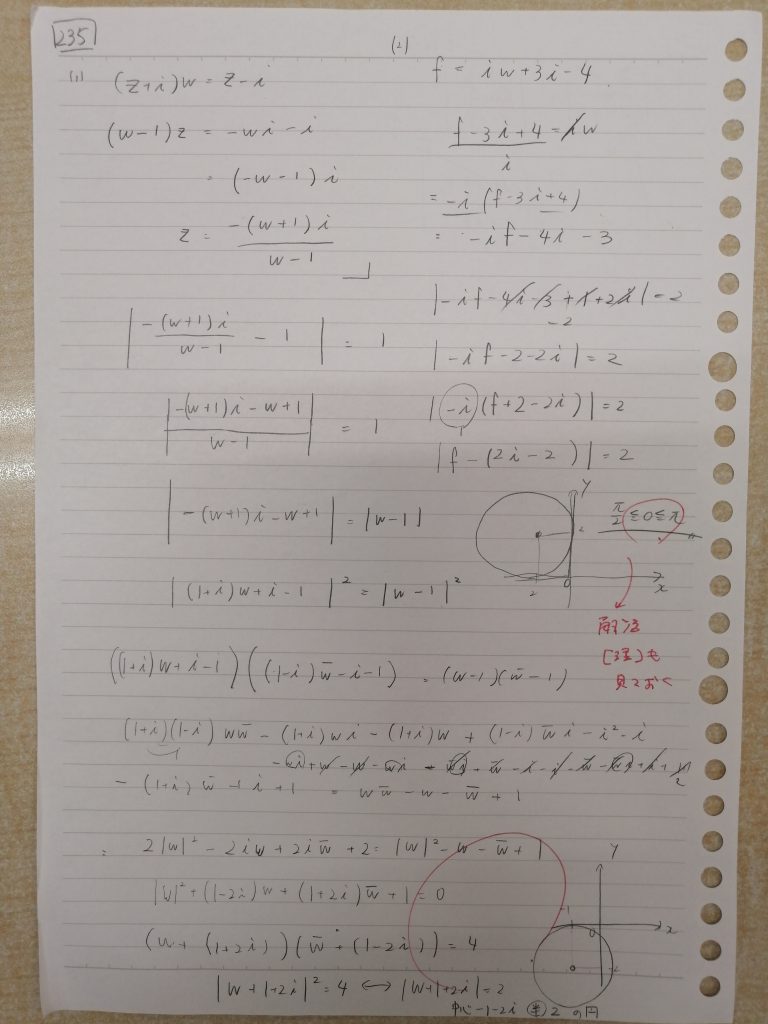 235
(1)
(z+i)w = z-i
(w-1)z = -wi-i
= (-w-1)i
z = -(w+1)i / w-1
| -(w+1)i / w-1 - 1 | = 1
| -(w+1)i-w+1 / w-1 | = 1
| -(w+1)i-w+1 | = |w-1|
| (1+i)w+i-1 |² = |w-1|²
((1+i)w+i-1)((1-i)w̄-i-1) = (w-1)(w̄-1)
(1+i)(1-i)ww̄ - (1+i)wi - (1+i)w + (1-i)w̄i - i² - i
- (1+i)w̄ + i + 1 = ww̄-w-w̄+1
= 2|w|² - 2iw + 2iw̄ + 2 = |w|²-w-w̄+1
|w|² + (1-2i)w + (1+2i)w̄ + 1 = 0
(w+(1+2i))(w̄+(1-2i)) = 4
|w+1+2i|² = 4 ⟷ |w+1+2i| = 2
中心-1-2i 半2の円
y
-1
0
x
(2)
f = iw+3i-4
f-3i+4 / i = iw
= -i(f-3i+4)
= -if-4i-3
|-if-4i-3+1+2i| = 2
-2
|-if-2-2i| = 2
|-i(f+2-2i)| = 2
1
|f-(2i-2)| = 2
y
2
0
x
2
π/2 ≦ θ ≦ π
解法
[3]も
見ておく